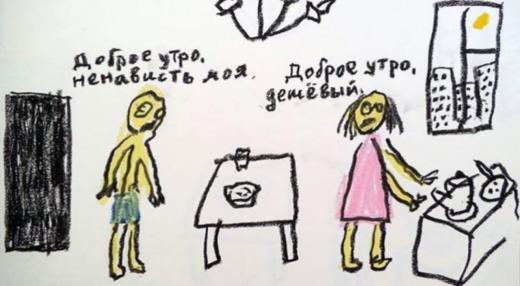 Доброе утро,
ненависть моя.
Доброе утро,
дешёвый.